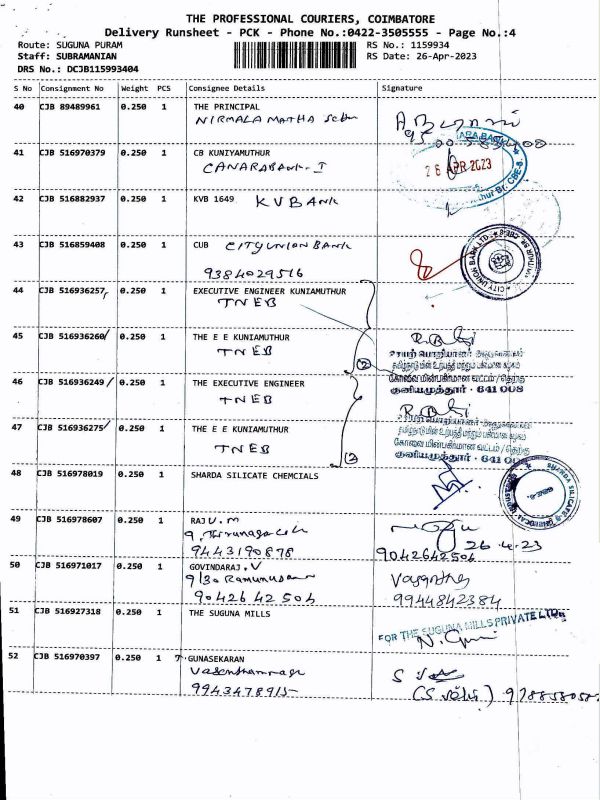 THE PROFESSIONAL COURIERS, COIMBATORE
Delivery Runsheet - PCK - Phone No.:0422-3505555 - Page No.:4
Route: SUGUNA PURAM RS No.: 1159934
Staff: SUBRAMANIAN RS Date: 26-Apr-2023
DRS No.: DCJB115993404
S No Consignment No Weight PCS Consignee Details Signature
40 CJB 89489961 0.250 1 THE PRINCIPAL
NIRMALA MATHA
41 CJB 516970379 0.250 1 CB KUNIYAMUTHUR
CANARABANK-I
26 APR 2023
42 CJB 516882937 0.250 1 KVB 1649 KVBANK
43 CJB 516859408 0.250 1 CUB CITYUNION BANK
9384029516
CITY UNION BANK LTD.
44 CJB 516936257 0.250 1 EXECUTIVE ENGINEER KUNIAMUTHUR
TNEB
45 CJB 516936260 0.250 1 THE E E KUNIAMUTHUR
TNEB
தமிழ்நாடு மின் உற்பத்தி மற்றும் பகிர்மான கழகம்
46 CJB 516936249 0.250 1 THE EXECUTIVE ENGINEER
கோவை மின்பகிர்மான வட்டம் / தெற்கு
குனியமுத்தூர் - 641 008
TNEB
47 CJB 516936275 0.250 1 THE E E KUNIAMUTHUR
TNEB
தமிழ்நாடு மின் உற்பத்தி மற்றும் பகிர்மான கழகம்
கோவை மின்பகிர்மான வட்டம் / தெற்கு
குனியமுத்தூர் - 641 008
48 CJB 516978019 0.250 1 SHARDA SILICATE CHEMCIALS
49 CJB 516978607 0.250 1 RAJ U.M
9443190878
26.4.23
9042642504
50 CJB 516971017 0.250 1 GOVINDARAJ.V
9/30
9042642504
Vasantha
9944842384
51 CJB 516927318 0.250 1 THE SUGUNA MILLS
FOR THE SUGUNA MILLS PRIVATE LTD.,
52 CJB 516970397 0.250 1 T.GUNASEKARAN
9943478915